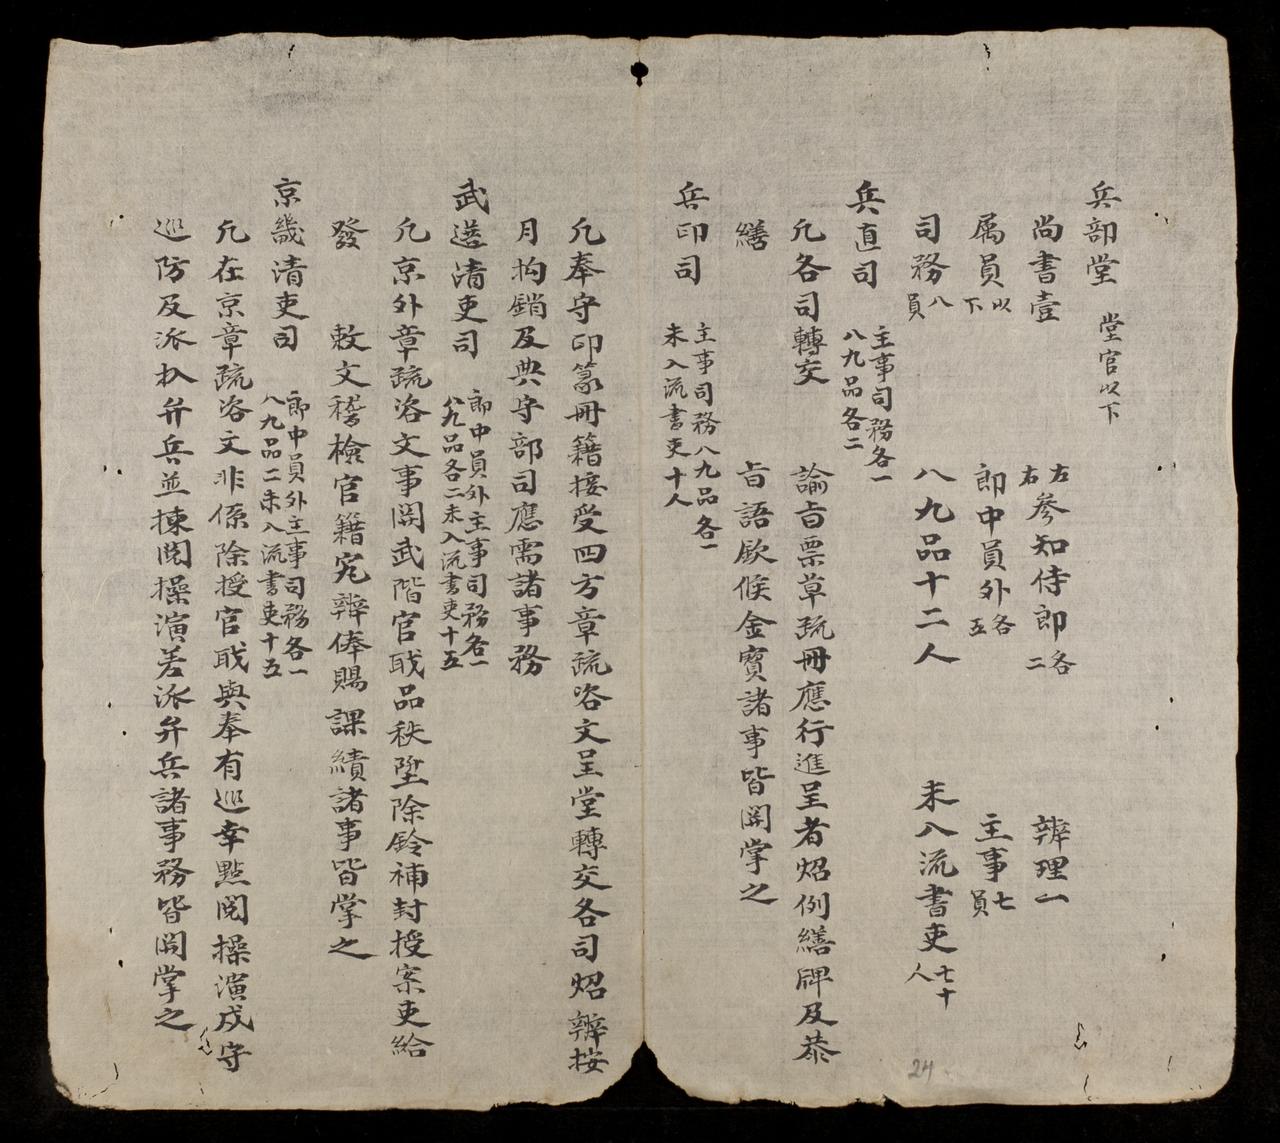 兵部堂 堂官以下
尚書壹 左右參知侍郎各二 辦理一
属員以下 郎中員外各五 主事七員
司務八員 八九品十二人 未入流書吏七十人
兵直司 主事司務各一八九品各二
凢各司轉交 諭旨票草疏冊應行進呈者炤例繕牌及恭
繕 旨語欽候金寶諸事皆関掌之
兵印司 主事司務八九品各一未入流書吏十人
凢奉守印篆冊籍接受四方章疏咨文呈堂轉交各司炤辦按
月拘銷及典守部司應需諸事務
武選清吏司 郎中員外主事司務各一八九品各二未入流書吏十五
凢京外章疏咨文事関武階官職品秩陞除銓補封授案吏給
發 敕文稽檢官籍究辦俸賜課績諸事皆掌之
京畿清吏司 郎中員外主事司務各一八九品二未入流書吏十五
凢在京章疏咨文非係除授官職與奉有巡幸點閲操演戍守
巡防及派扒弁兵並揀閲操演差派弁兵諸事務皆関掌之
24